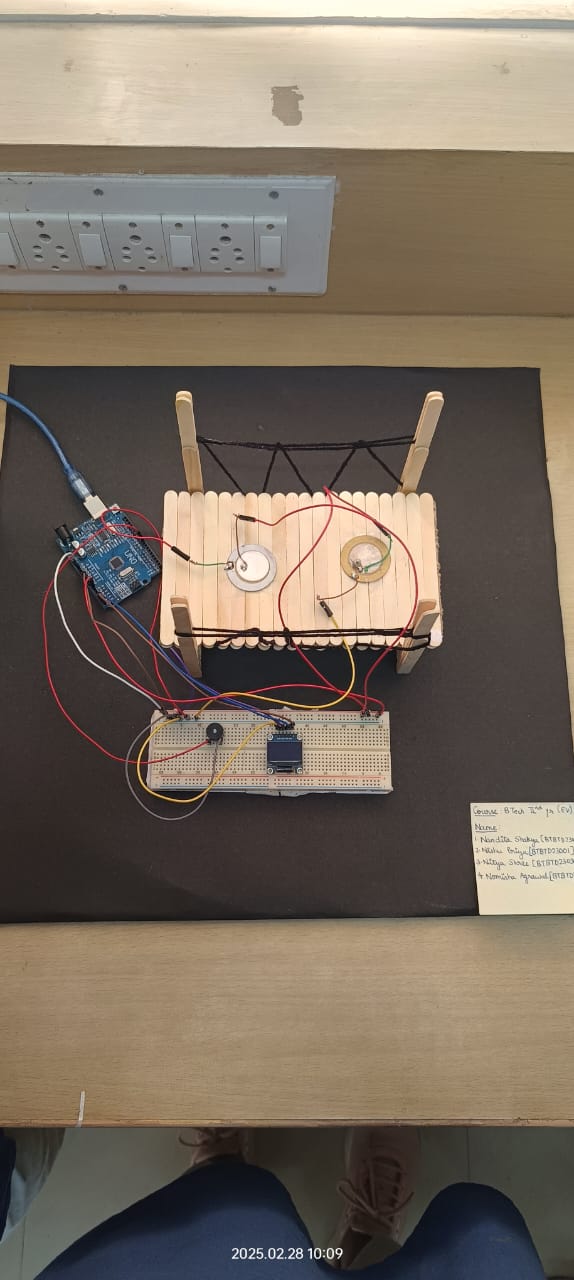 UNO
Course: BTech IInd yr (EV)
Name:
1. Nandita Shakya [BTBTD230
2. Nishu Priya [BTBTD23001]
3. Nitya Shree [BTBTD230
4. Nomisha Agrawal [BTBTD
2025.02.28 10:09